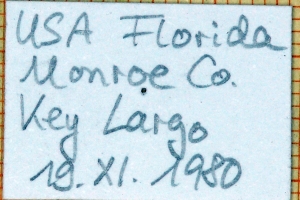 USA Florida
Monroe Co.
Key Largo
19. XI. 1980